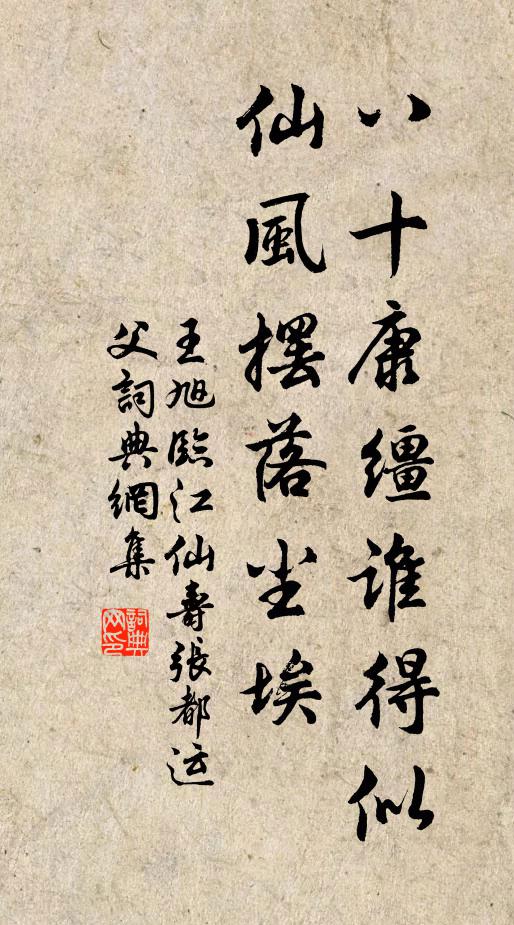 八十康繮誰得似
仙風擺落尘埃
王旭臨江仙壽張都运
父詞典網集
詞典
网印